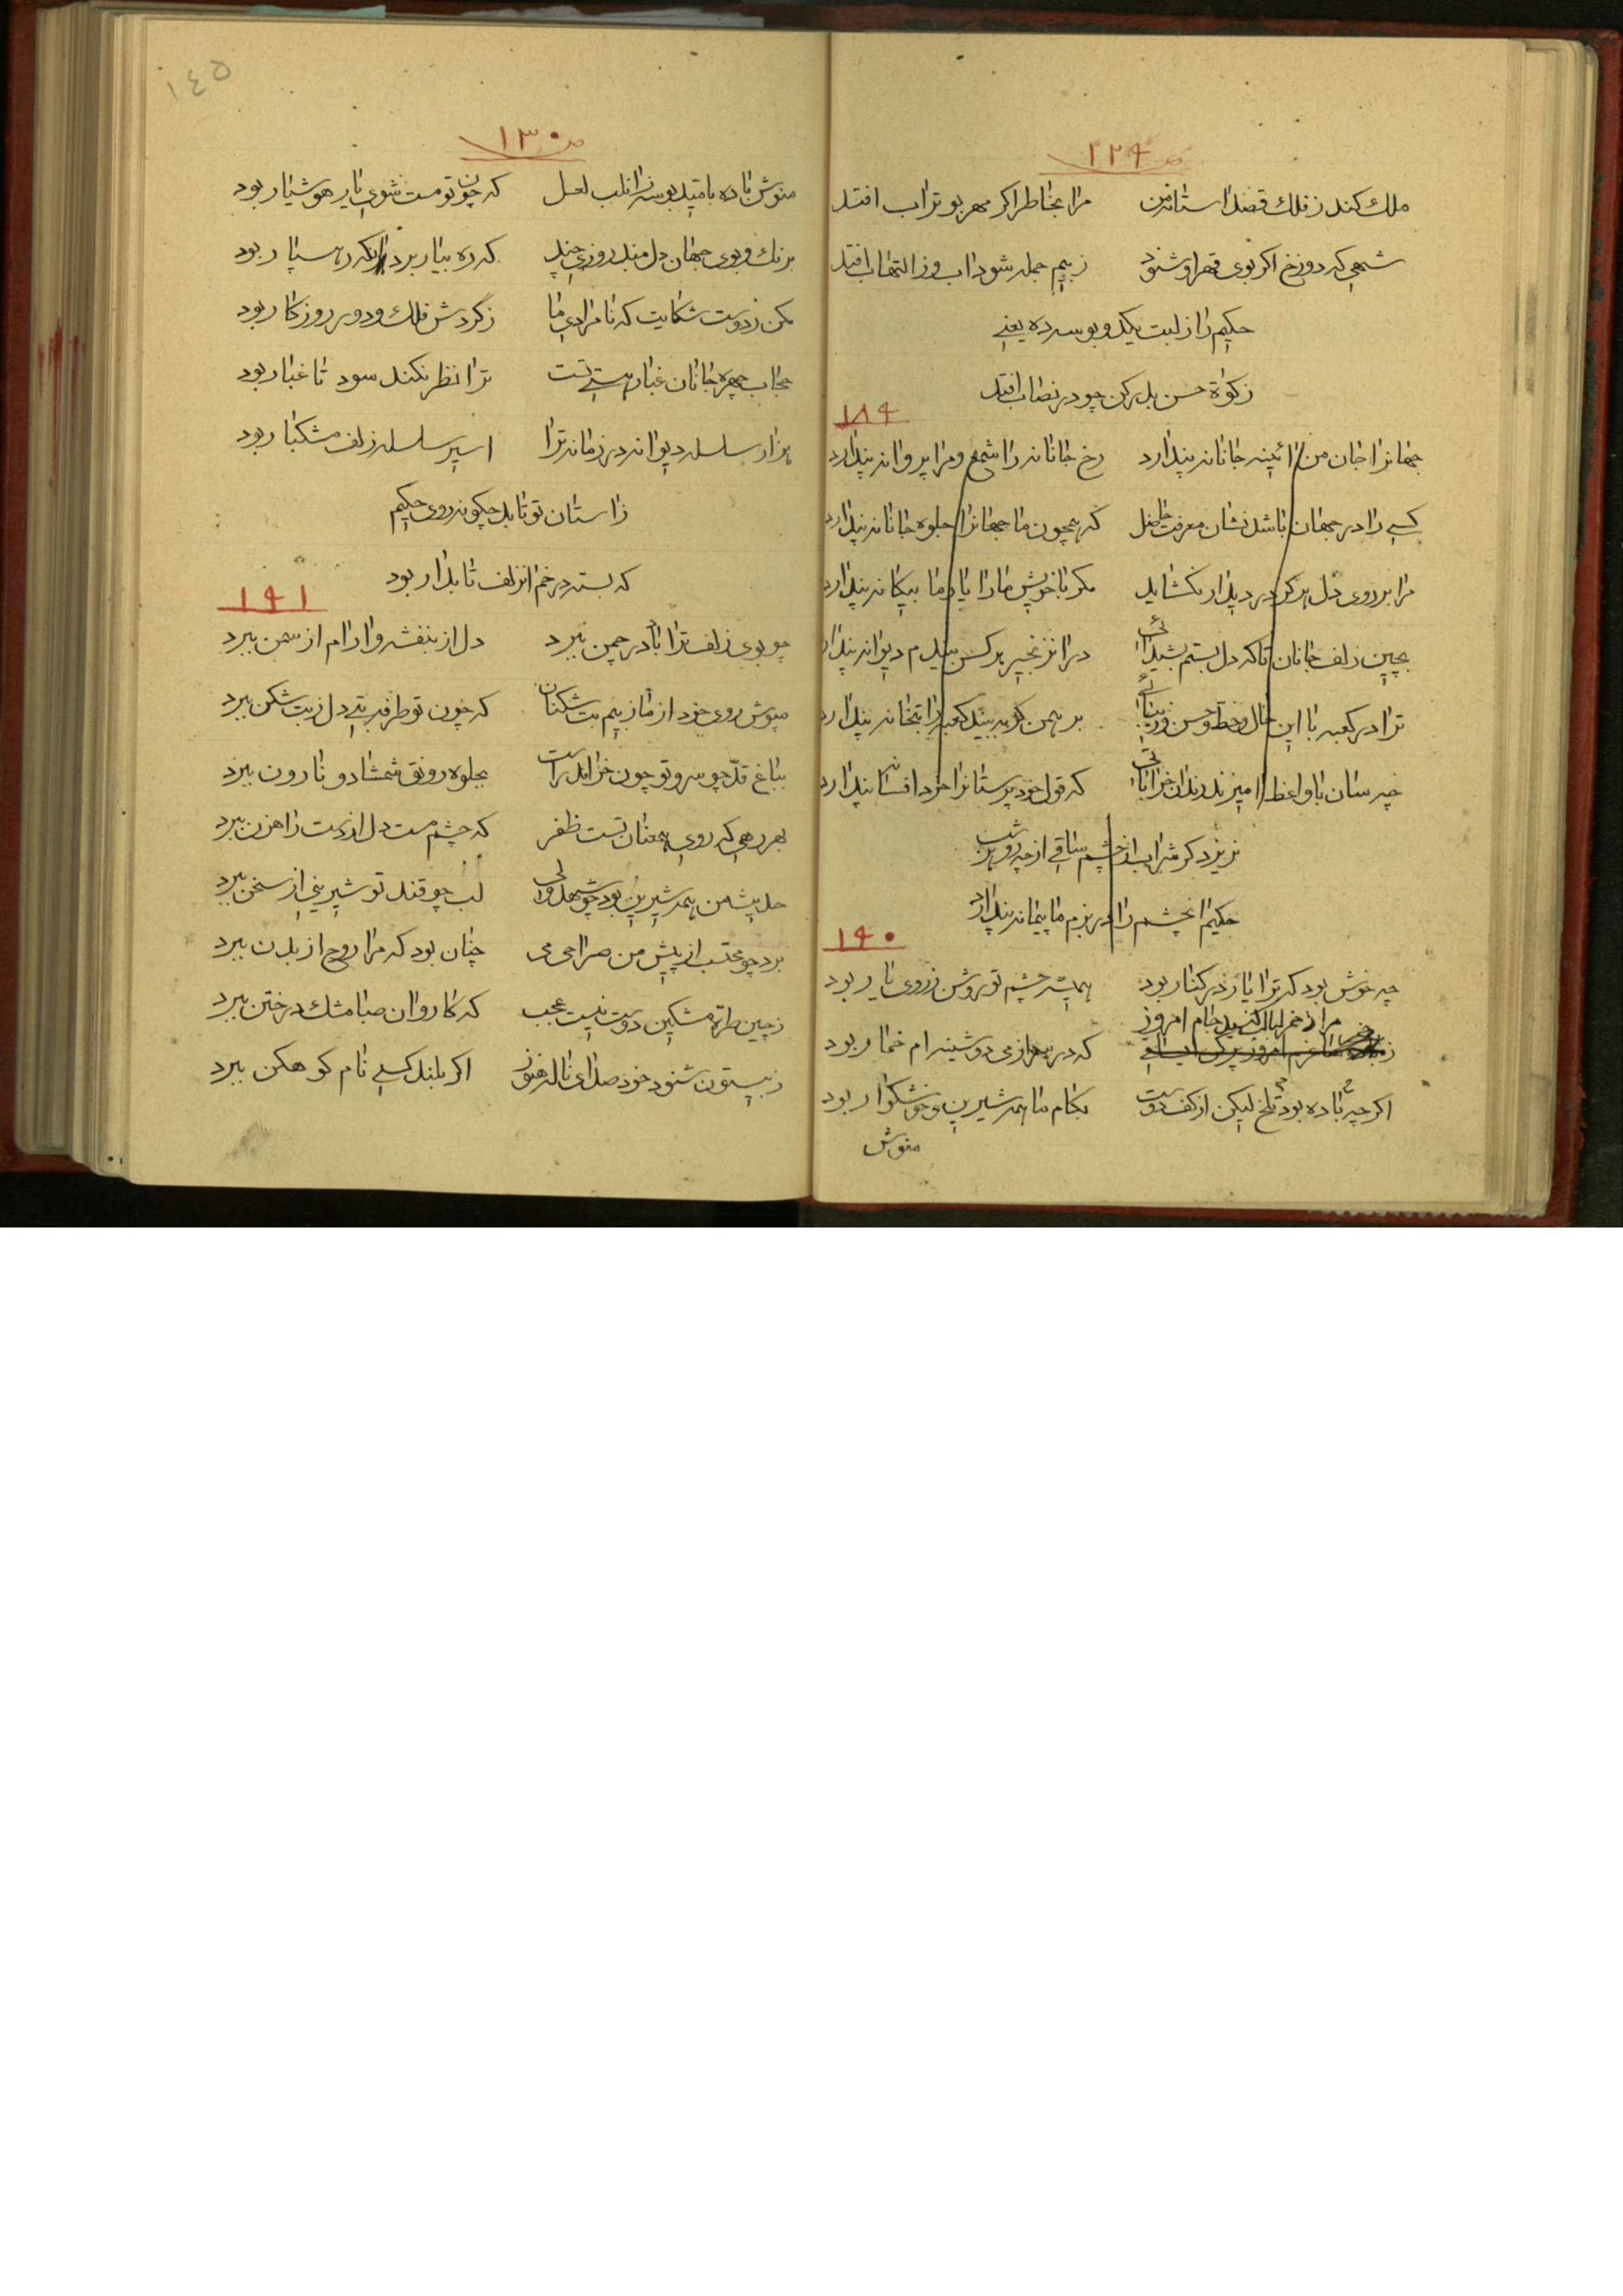 ص ١٢٩
ملك كند ز فلك قصد استانه من مرا بخاطر اكر مهر بوتراب افتد
شهی كه دوزخ اكر بوی قهر او شنود ز بیم جمله شود اب وز التهاب افتد
حكیم را ز لبت یكدو بوسه ده یعنی
زكوة حسن بدر كن چو در نصاب افتد
١٨٩
جهانرا جان من ائینه جانانه پندارد رخ جانانه را شمع و مرا پروانه پندارد
كسی را در جهان باشد نشان معرفت حاصل كه همچون ما جهانرا جلوه جانانه پندارد
مرا بر روی دل هركز در دیدار نكشاید مكر با خویش مارا یار ما بیكانه پندارد
بچین زلف جانان تا كه دل بستم بشیدائی در انزنجیر هركس بیندم دیوانه پندارد
ترا در كعبه با این خال و خط و حسن و زیبائی برهمن كر ببیند كعبه را بتخانه پندارد
چه سان با واعظ امیزند رندان خراباتی كه قول خود پرستانرا خرد افسانه پندارد
نریزد كر شراب از چشم ساقی از چه رو هر شب
حكیم انچشم را در بزم ما پیمانه پندارد
١٩٠
چه خوش بود كه ترا یار در كنار بود همیشه چشم تو روشن ز روی یار بود
مرا ز خم لبالب كنید جام امروز
كه در سرم از می دوشینه ام خمار بود
اكر چه باده بود تلخ لیكن از كف دوست بكام ما همه شیرین و خوشكوار بود
منوش
١٤٥
ص ١٣٠
منوش باده بامید بوسه زانلب لعل كه چون تو مست شوی یار هوشیار بود
برنك و بوی جهان دل مبند روزی چند كه ره بیار برد انكه رهسپار بود
مكن ز دوست شكایت كه نامرادی ما ز كردش فلك و دور روزكار بود
حجاب چهره جانان غبار هستی تست ترا نظر نكند سود تا غبار بود
هزار سلسله دیوانه در زمانه ترا اسیر سلسله زلف مشكبار بود
ز استان تو تابد چكونه روی حكیم
كه بسته در خم انزلف تابدار بود
١٩١
چو بوی زلف ترا باد در چمن ببرد دل از بنفشه و ارام از سمن ببرد
مپوش روی خود از ما ز بیم بت شكنان كه چون تو طرفه بتی دل ز بت شكن ببرد
بباغ قد چو سرو تو چون خرامد راست بجلوه رونق شمشاد و نارون ببرد
بهر رهی كه روی همعنان تست ظفر كه چشم مست دل از دست راهزن ببرد
حدیث من همه شیرین بود چو شهد ولی لب چو قند تو شیرینی از سخن ببرد
برد چو محتسب از پیش من صراحی می چنان بود كه مرا روح از بدن ببرد
ز چین طره مشكین دوست نیست عجب كه كاروان صبا مشك در ختن ببرد
ز بیستون شنود خود صدای ناله هنوز اكر بلند كسی نام كوهكن ببرد